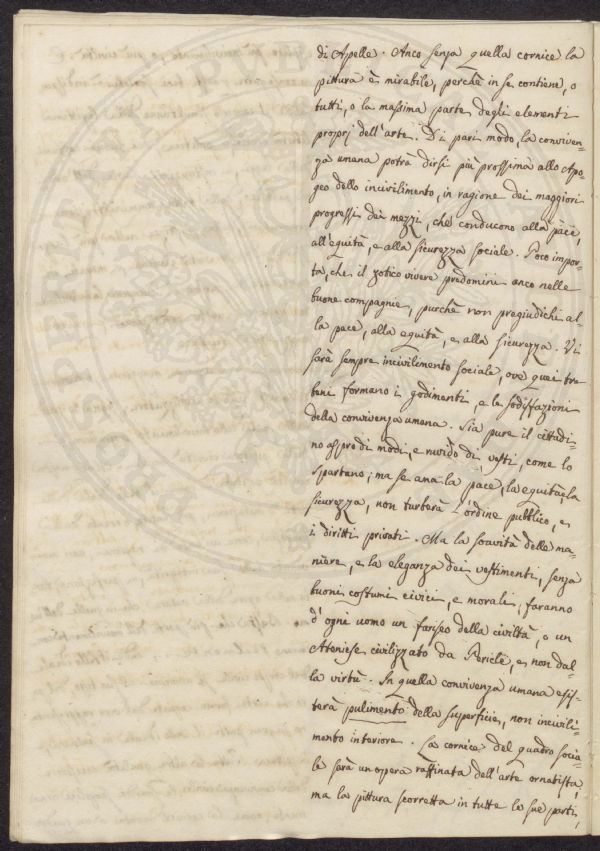 di Apelle. Anco senza quella cornice la
pittura è mirabile, perchè in se contiene, o
tutti, o la massima parte degli elementi
proprj dell'arte. Di pari modo, la conviven-
za umana potrà dirsi più prossima allo Apo-
geo dello incivilimento, in ragione dei maggiori
progressi dei mezzi, che conducono alla pace,
all'equità, e alla sicurezza sociale. Poco impor-
ta, che il zotico vivere predomini anco nelle
buone compagnie, purchè non pregiudichi al-
la pace, alla equità, e alla sicurezza. Vi
sarà sempre incivilimento sociale, ove quei tre
beni formano i godimenti, e le sodisfazioni
della convivenza umana. Sia pure il cittadi-
no aspro di modi, e ruvido di vesti, come lo
Spartano; ma se ama la pace, la equità, la
sicurezza, non turberà l'ordine pubblico, e
i diritti privati. Ma la soavità delle ma-
niere, e la eleganza dei vestimenti, senza
buoni costumi civici, e morali, faranno
d'ogni uomo un fariseo della civiltà, o un
Ateniese civilizzato da Pericle, e non dal-
la virtù. In quella convivenza umana esis-
terà pulimento della superficie, non incivili-
mento interiore. La cornice del quadro socia-
le sarà un opera raffinata dell'arte ornatista,
ma la pittura scorretta in tutte le sue parti,
PRO PVB